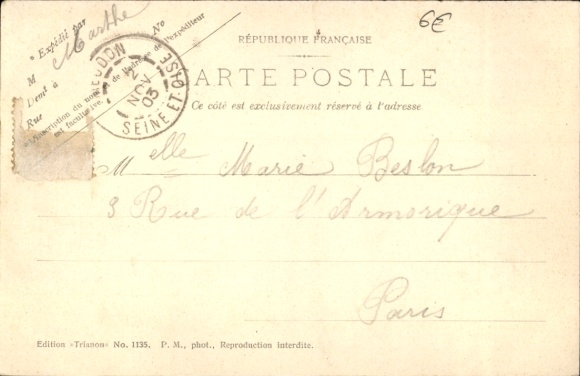 6€
* Expédié par Marthe
M
Demt à
Rue No
* L'inscription du nom et de l'adresse de l'expéditeur
est facultative.
MEUDON
NOV
03
SEINE-ET-OISE
RÉPUBLIQUE FRANÇAISE
CARTE POSTALE
Ce côté est exclusivement réservé à l'adresse
Melle Marie Beslon
3 Rue de l'Armorique
Paris
Edition »Trianon« No. 1135. P. M., phot., Reproduction interdite.